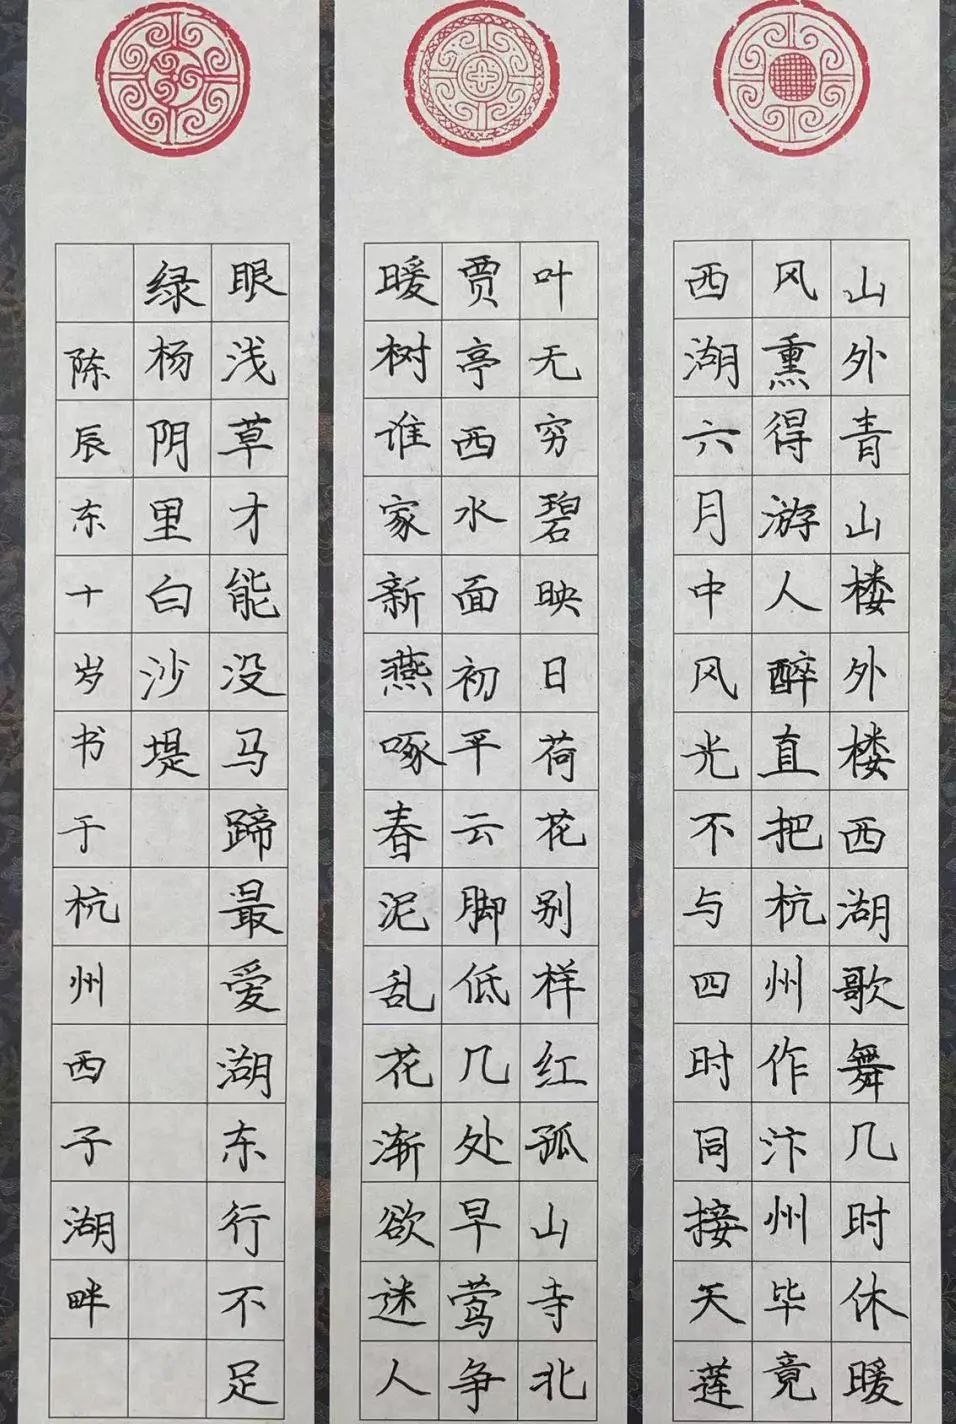 山外青山楼外楼西湖歌舞几时休暖
风熏得游人醉直把杭州作汴州毕竟
西湖六月中风光不与四时同接天莲
叶无穷碧映日荷花别样红孤山寺北
贾亭西水面初平云脚低几处早莺争
暖树谁家新燕啄春泥乱花渐欲迷人
眼浅草才能没马蹄最爱湖东行不足
绿杨阴里白沙堤
陈辰东十岁书于杭州西子湖畔